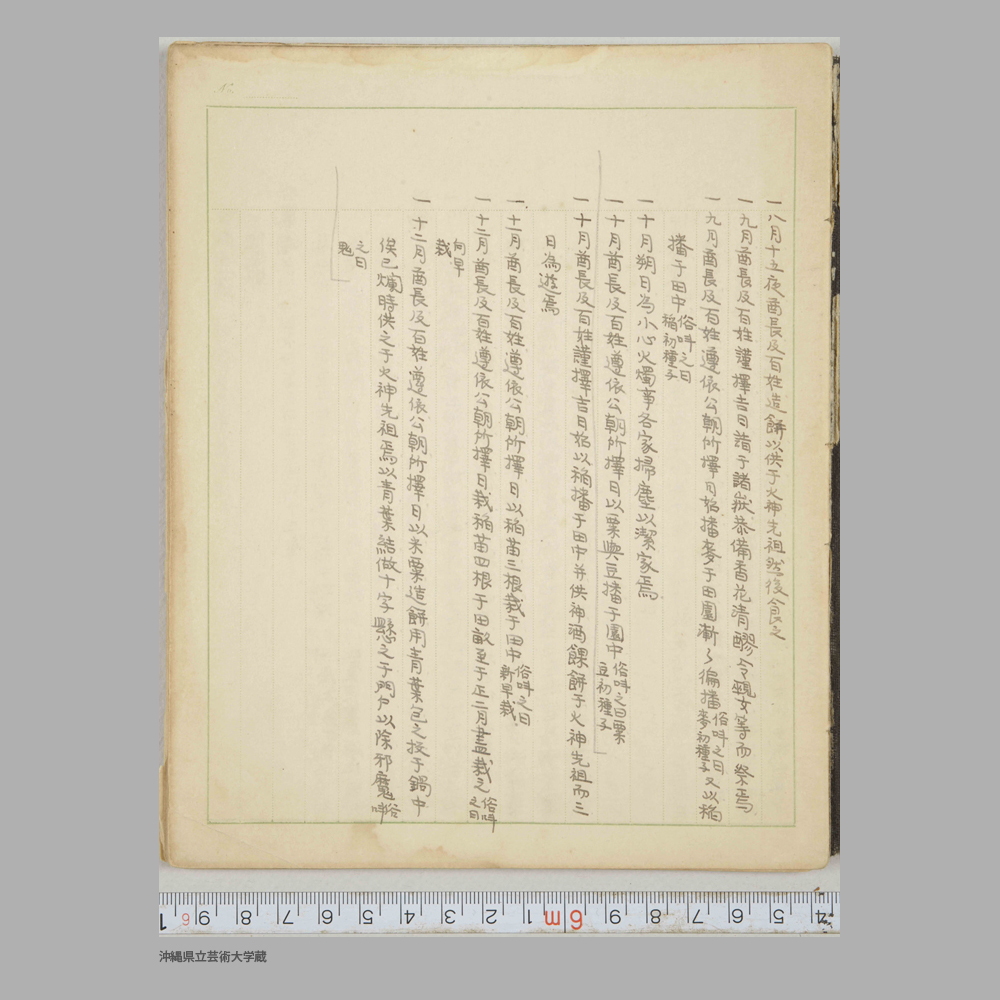 一八月十五夜酋長及百姓造餅以供于火神先祖然後食之
一九月酋長及百姓謹擇吉日諸于諸嶽恭備香花清醪令覡女等而祭焉
一九月酋長及百姓遵依公朝所擇日始播麥于田園漸々徧播俗呌之曰麥初種子又以稲
播于田中俗呌之曰稲初種子
一十月朔日為小心火燭事各家掃塵以潔家焉
一十月酋長及百姓遵依公朝所擇日以粟與豆播于園中俗呌之曰粟豆初種子
一十月酋長及百姓謹擇吉日始以稲播于田中并供神酒餜餅于火神先祖而三
日為遊焉
一十一月酋長及百姓遵依公朝所擇日以稲苗三根栽于田中俗呌之曰新早栽
一十二月酋長及百姓遵依公朝所擇日栽稲苗四根于田畝至于正二月盡栽之俗呌之曰
向早栽
一十二月酋長及百姓遵依公朝所擇日以米粟造餅用青葉包之投于鍋中
俟已爛時供之于火神先祖焉以青葉結做十字懸之于門戸以除邪魔俗呌
之曰鬼
6 9 8 7 6 5 4 3 2 1 6m 9 8 7 6 5 4
沖縄県立芸術大学蔵